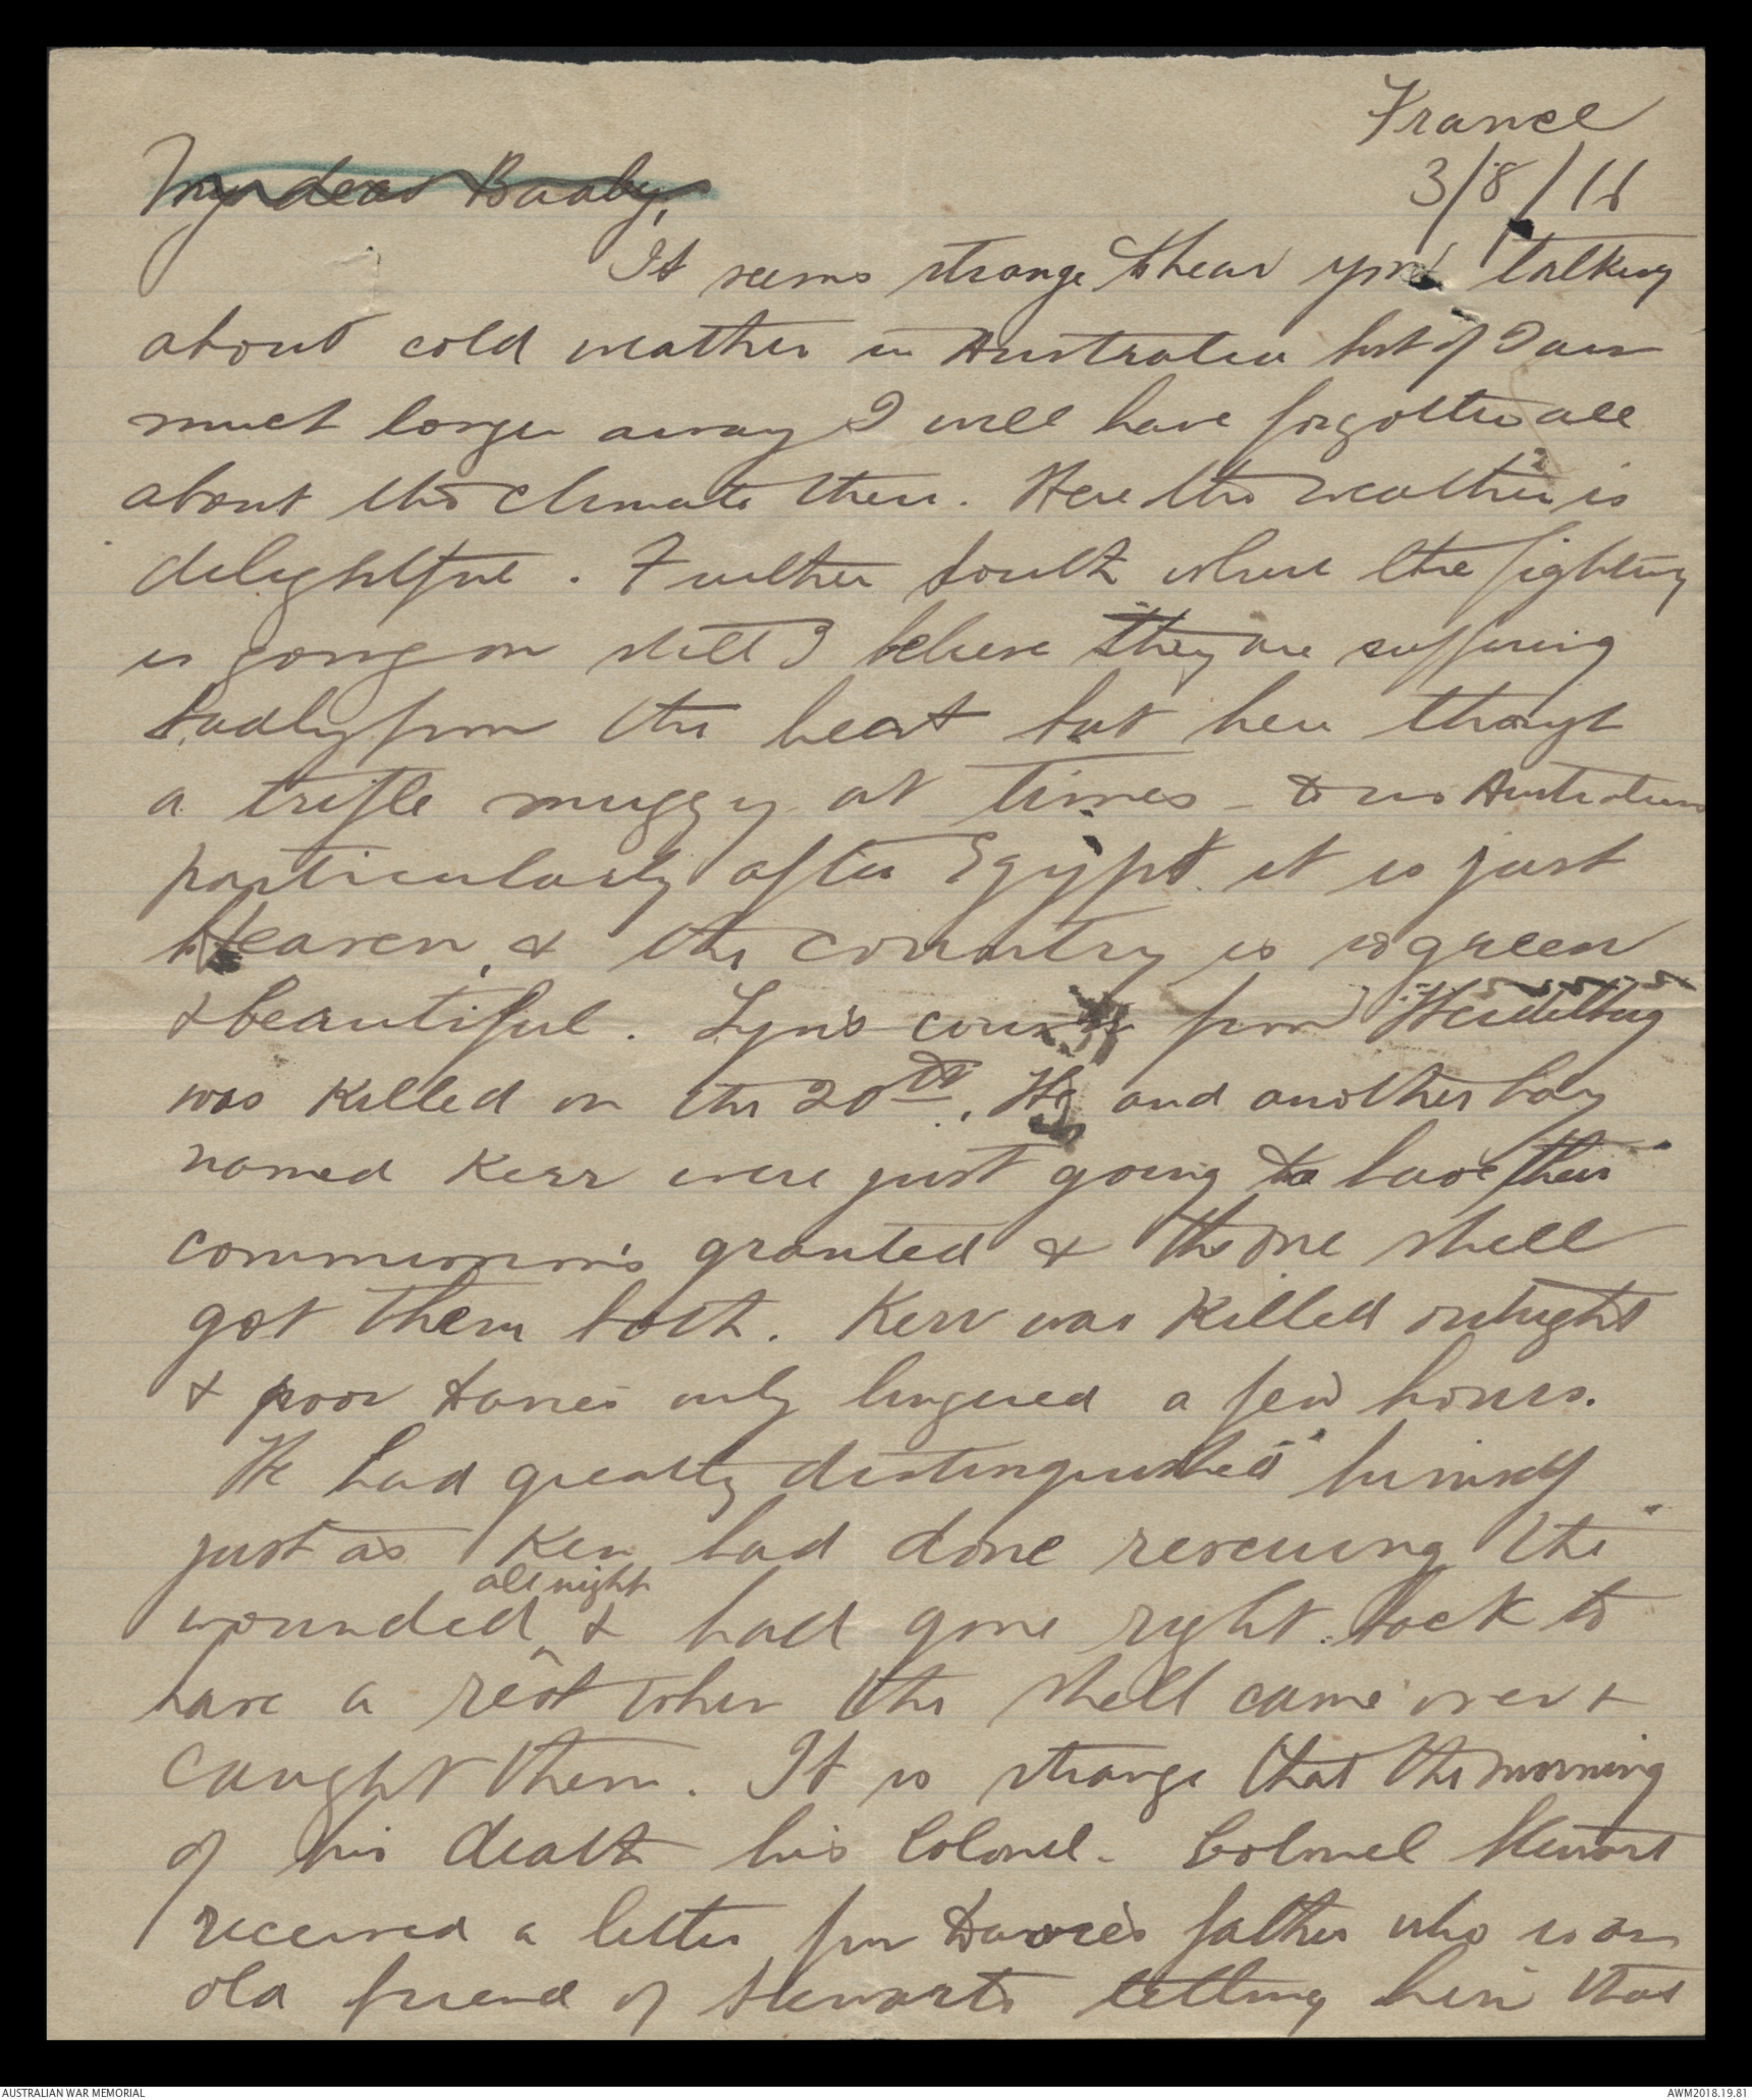 France
3/8/16
My dear Baaby,
It seems strange to hear you talking
about cold weather in Australia but if I am
much longer away I will have forgotten all
about the climate there. Here the weather is
delightful. Further South where the fighting
is going on still I believe they are suffering
badly from the heat but here though
a trifle muggy at times - to us Australians
particularly after Egypt it is just
Heaven, & the country is so green
& beautiful. Lyn's cousin from Heidelberg
was killed on the 20th. He and another boy
named Kerr were just going to have their
commission's granted & the one shell
got them both. Kerr was killed outright
& poor only lingered a few hours.
He had greatly distinguished himself
just as Ken had done rescuing the
all night
wounded & had gone right back to
have a rest when the shell came over &
caught them. It is strange that the morning
of his death his Colonel - Colonel Stewart
received a letter from father who is an
old friend of Stewarts telling him that
AUSTRALIAN WAR MEMORIAL
AWM2018.19.81